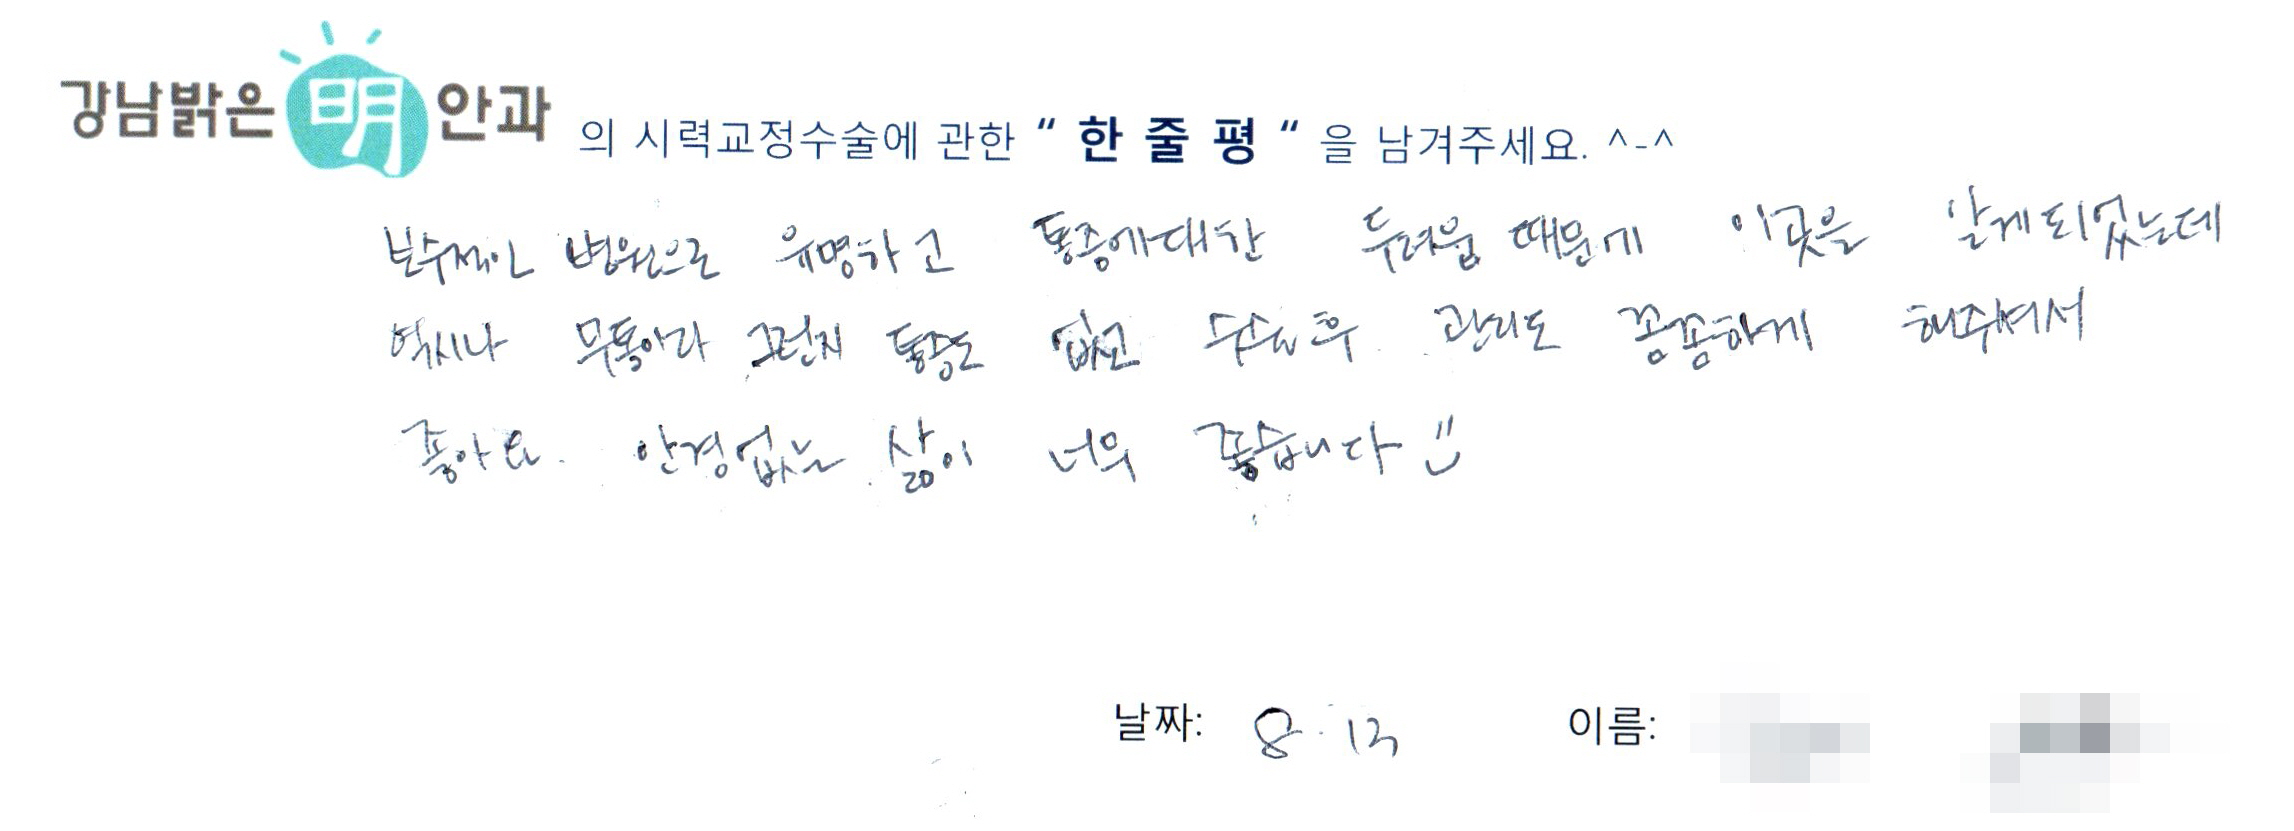 강남밝은 明 안과 의 시력교정수술에 관한 “ 한 줄 평 “ 을 남겨주세요. ^-^
보수적인 병원으로 유명하고 통증에대한 두려움 때문에 이곳을 알게되었는데
역시나 무통이라 그런지 통증도 없고 수술후 관리도 꼼꼼하게 해주셔서
좋아요. 안경없는 삶이 너무 좋습니다
날짜: 8. 13 이름: